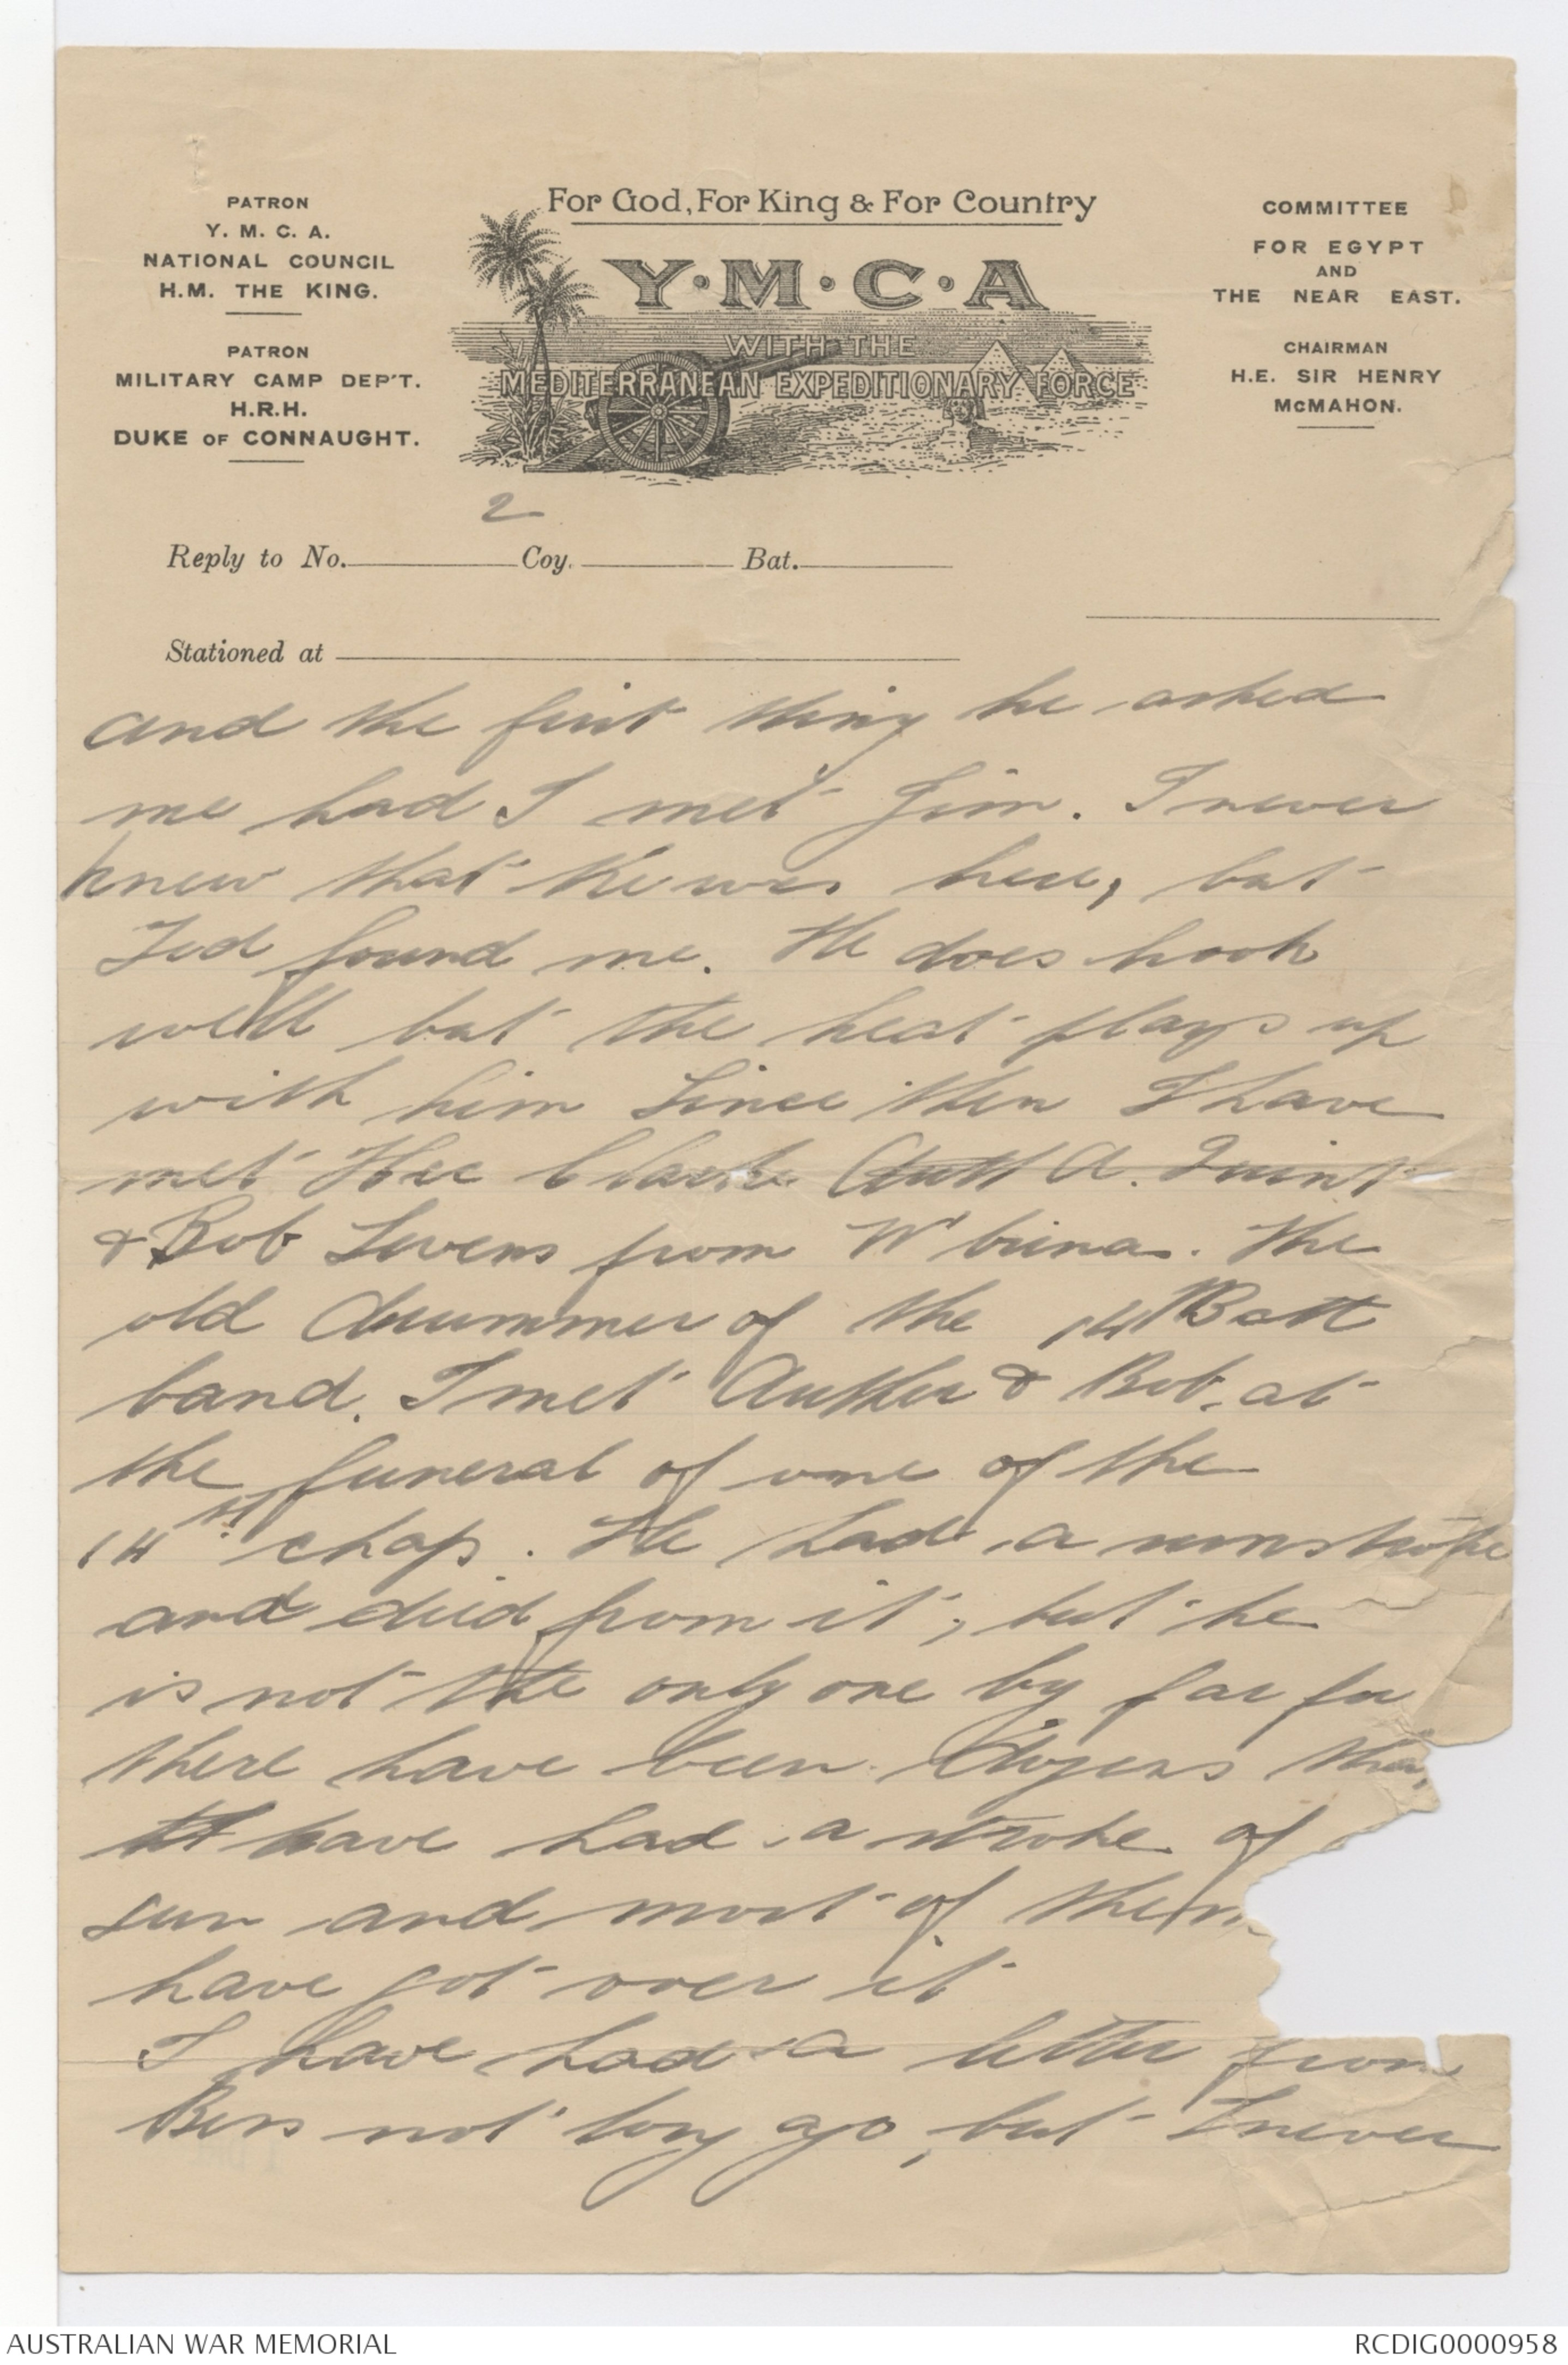 PATRON
Y. M. C. A.
NATIONAL COUNCIL
H.M. THE KING.
PATRON
MILITARY CAMP DEP'T.
H.R.H.
DUKE OF CONNAUGHT.
For God, For King & For Country
Y·M·C·A
WITH THE
MEDITERRANEAN EXPEDITIONARY FORCE
COMMITTEE
FOR EGYPT
AND
THE NEAR EAST.
CHAIRMAN
H.E. SIR HENRY
McMAHON.
2
Reply to No. Coy. Bat.
Stationed at
and the first thing he asked
me had I met Jim. I never
knew that he was here, but
Ted found me. He does look
well but the heat plays up
with him Since then I have
met Clarke A.
& Bob from W'bina. the
old drummer of the 14th Batt
band. I met Arther & Bob at
the funeral of one of the
14th chap. He had a sunstroke
and died from it, but he
is not the only one by far for
there have been dozens that
have had a stroke of
sun and most of them
have got over it
I have had a letter from
Bess not long ago, but I never
AUSTRALIAN WAR MEMORIAL
RCDIG0000958